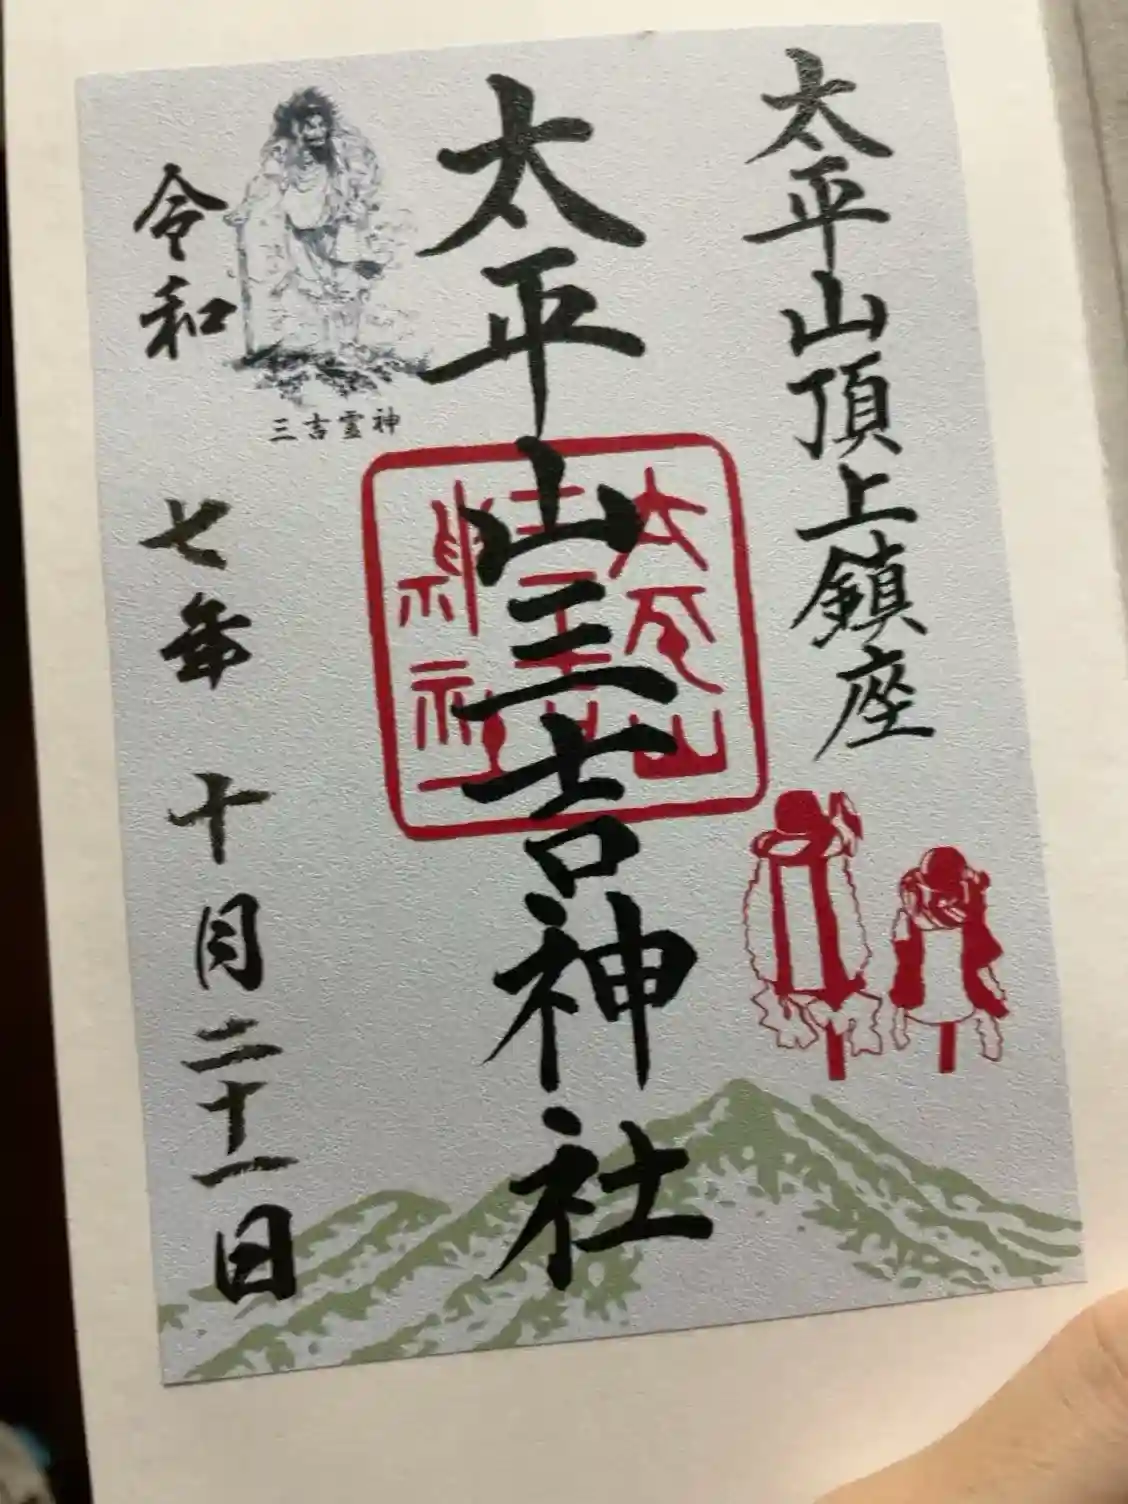 太平山頂上鎮座
太平山三吉神社
太平山
三吉霊神
令和七年十月二十一日